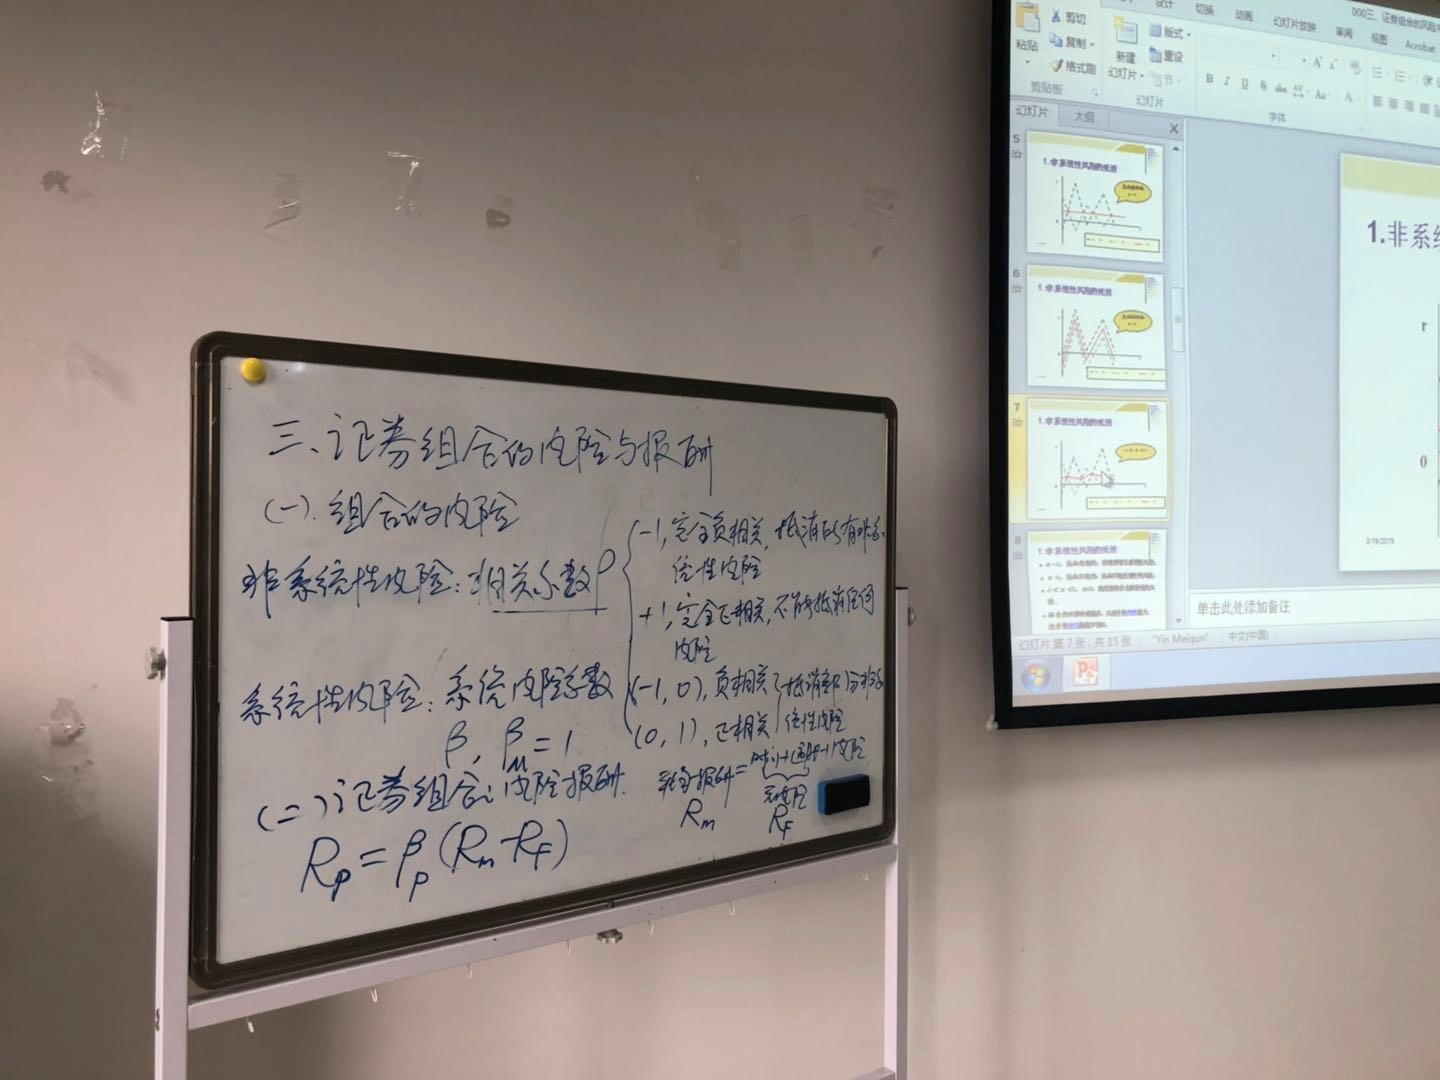 三、证券组合的风险与报酬
(一). 组合的风险
非系统性风险: 相关系数 ρ
-1, 完全负相关, 抵消所有非系
统性风险
+1, 完全正相关, 不能抵消任何
风险
(-1, 0), 负相关
(0, 1), 正相关
抵消部分非系
统性风险
系统性风险: 系统风险系数
β, βm = 1
(二) 证券组合 风险报酬.
Rp = βp (Rm - Rf)
报酬 =
Rm
Rf
000三、证券组合的风险
设计 切换 动画 幻灯片放映 审阅 视图 Acrobat
粘贴
剪切
复制
格式刷
剪贴板
新建
幻灯片
版式
重设
节
幻灯片
B I U S abc AV Aa A
字体
幻灯片 大纲
5
1.非系统性风险的抵消
6
1.非系统性风险的抵消
7
1.非系统性风险的抵消
8
1.非系统性风险的抵消
1.非系
r
0
3/19/2019
单击此处添加备注
幻灯片 第 7 张, 共 15 张 "Yin Meiqun" 中文(中国)